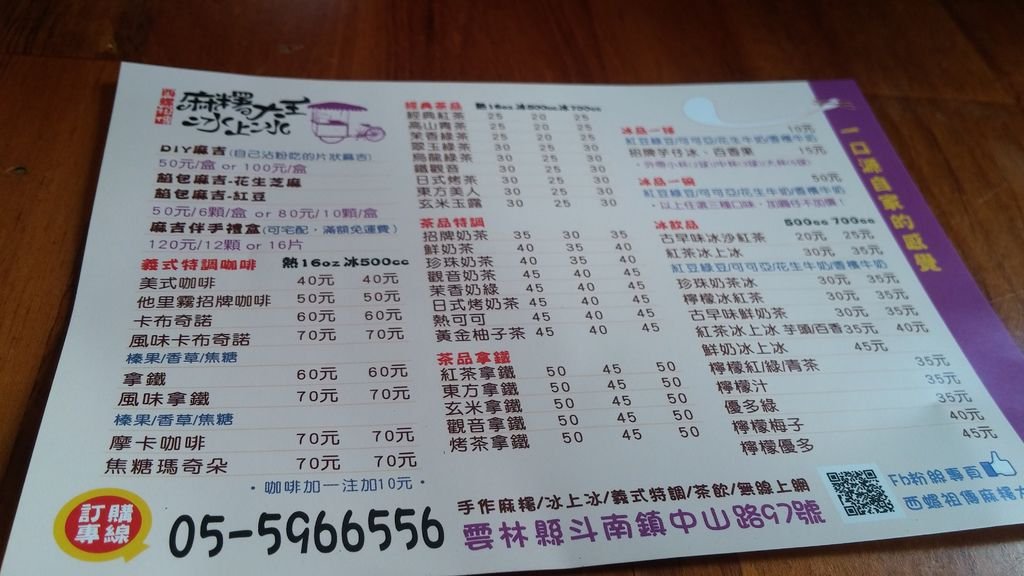 西螺祖傳
麻糬大王
冰上冰
DIY麻吉(自己沾粉吃的片狀麻吉)
50元/盒 or 100元/盒
餡包麻吉-花生芝麻
餡包麻吉-紅豆
50元/6顆/盒 or 80元/10顆/盒
麻吉伴手禮盒(可宅配,滿額免運費)
120元/12顆 or 16片
義式特調咖啡 熱16oz 冰500cc
美式咖啡 40元 40元
他里霧招牌咖啡 50元 50元
卡布奇諾 60元 60元
風味卡布奇諾 70元 70元
榛果/香草/焦糖
拿鐵 60元 60元
風味拿鐵 70元 70元
榛果/香草/焦糖
摩卡咖啡 70元 70元
焦糖瑪奇朵 70元 70元
・咖啡加一注加10元・
經典茶品 熱16oz 冰500cc 冰700cc
經典紅茶 25 20 25
高山青茶 25 20 25
茉香綠茶 25 20 25
翠玉綠茶 30 25 30
烏龍綠茶 30 25 30
鐵觀音 30 25 30
日式烤茶 30 25 30
東方美人 30 25 30
玄米玉露 30 25 30
茶品特調
招牌奶茶 35 30 35
鮮奶茶 40 35 40
珍珠奶茶 40 35 40
觀音奶茶 45 40 45
茉香奶綠 45 40 45
日式烤奶茶 45 40 45
熱可可 45 40 45
黃金柚子茶 45 40 45
茶品拿鐵
紅茶拿鐵 50 45 50
東方拿鐵 50 45 50
玄米拿鐵 50 45 50
觀音拿鐵 50 45 50
烤茶拿鐵 50 45 50
冰品一球 10元
紅豆綠豆/可可亞/花生牛奶/香檳牛奶
招牌芋仔冰、百香果 15元
冰品一碗 50元
紅豆綠豆/可可亞/花生牛奶/香檳牛奶
・以上任選三種口味,加麻吉不加價!
冰飲品 500cc 700cc
古早味冰沙紅茶 20元 25元
紅茶冰上冰 30元 35元
紅豆綠豆/可可亞/花生牛奶/香檳牛奶
珍珠奶茶冰 30元 35元
檸檬冰紅茶 30元 35元
古早味鮮奶茶 30元 35元
紅茶冰上冰 芋頭/百香 35元 40元
鮮奶冰上冰 45元
檸檬紅/綠/青茶 35元
檸檬汁 35元
優多綠 35元
檸檬梅子 40元
檸檬優多 45元
一口源自家的感覺
訂購專線
05-5966556
手作麻糬/冰上冰/義式特調/茶飲/無線上網
雲林縣斗南鎮中山路97號
Fb粉絲專頁
西螺祖傳麻糬